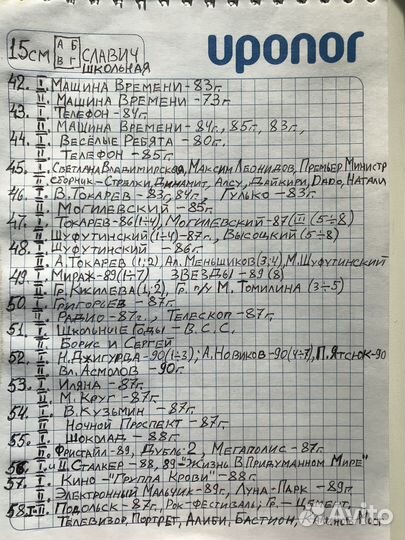 15см АБ ВГ СЛАВИЧ uponor
ШКОЛЬНАЯ
42. I МАШИНА ВРЕМЕНИ - 83г.
II МАШИНА ВРЕМЕНИ - 73г.
43. I ТЕЛЕФОН - 84г.
II МАШИНА ВРЕМЕНИ - 84г., 85г., 83г.,
44. I ВЕСЁЛЫЕ РЕБЯТА - 80г.
II ТЕЛЕФОН - 85г.
45. I СВЕТЛАНА ВЛАДИМИРСКАЯ, МАКСИМ ЛЕОНИДОВ, ПРЕМЬЕР МИНИСТР
II СБОРНИК - СТРЕЛКИ, ДИНАМИТ, АЛСУ, ДАЙКИРИ, DADO, НАТАЛИ
46. I В. ТОКАРЕВ - 83г, 84г., ГУЛЬКО - 83г.
II МОГИЛЕВСКИЙ - 85г.
47. I ТОКАРЕВ - 86г(1÷4), МОГИЛЕВСКИЙ - 87(II (5÷8)
II ШУФУТИНСКИЙ (1÷4) - 87г., ВЫСОЦКИЙ (5÷8)
48. I ШУФУТИНСКИЙ - 86г.
II А. ТОКАРЕВ (1,2) АЛ. МЕНЬШИКОВ (3,4), М. ШУФУТИНСКИЙ
49. I МИРАЖ - 89(1÷7) ЗВЕЗДЫ - 89(8)
II ГР. КИСИЛЕВА (1,2), ГР. П/У М. ТОМИЛИНА (3÷5)
50. I ГРИГОРЬЕВ - 87г.
II РАДИО - 87г, ТЕЛЕСКОП - 87г.
51. I ШКОЛЬНЫЕ ГОДЫ - В.С.С.
II БОРИС И СЕРГЕЙ
52. I Н. ДЖИГУРДА - 90(1÷3); А. НОВИКОВ - 90(4÷7), П. ЯТСЮК - 90
II ВЛ. АСМОЛОВ - 90г.
53. I ИЛЯНА - 87г.
II М. КРУГ - 87г.
54. I В. КУЗЬМИН - 87г.
II НОЧНОЙ ПРОСПЕКТ - 87г.
55. I ШОКОЛАД - 88г.
II ФРИСТАЙЛ - 89, ДУБЛЬ-2, МЕГАПОЛИС - 87г.
56. I и II СТАЛКЕР - 88, 89 - "ЖИЗНЬ В ПРИДУМАННОМ МИРЕ"
57. I КИНО - "ГРУППА КРОВИ" - 88г.
II ЭЛЕКТРОННЫЙ МАЛЬЧИК - 89г, ЛУНА-ПАРК - 89г.
58. I-II ПОДОЛЬСК - 87г., РОК-ФЕСТИВАЛЬ; ГР. - ЦЕМЕНТ,
ТЕЛЕВИЗОР, ПОРТРЕТ, АЛИБИ, БАСТИОН,
Avito